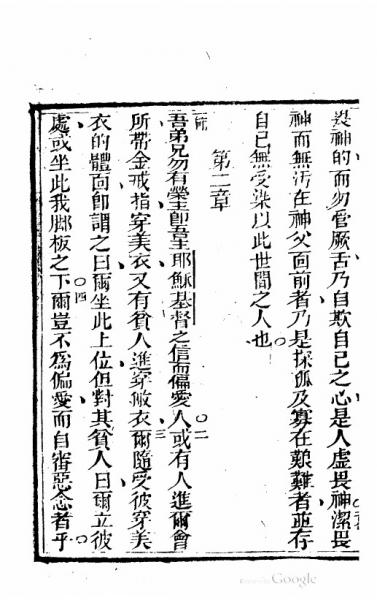 畏神的而勿管厥舌乃自欺自己之心是人虛畏神潔畏
神而無污在神父面前者乃是探孤及寡在艱難者並存
自己無受染以此世間之人也
第二章
吾弟兄勿有榮主即吾主耶穌基督之信而偏愛人或有人進爾會
所帶金戒指穿美衣又有貧人進穿敝衣爾隨受彼穿美
衣的體面即謂之曰爾坐此上位但對其貧人曰爾立彼
處或坐此我腳板之下爾豈不為偏愛而自審惡念者乎
二
三
四
Google